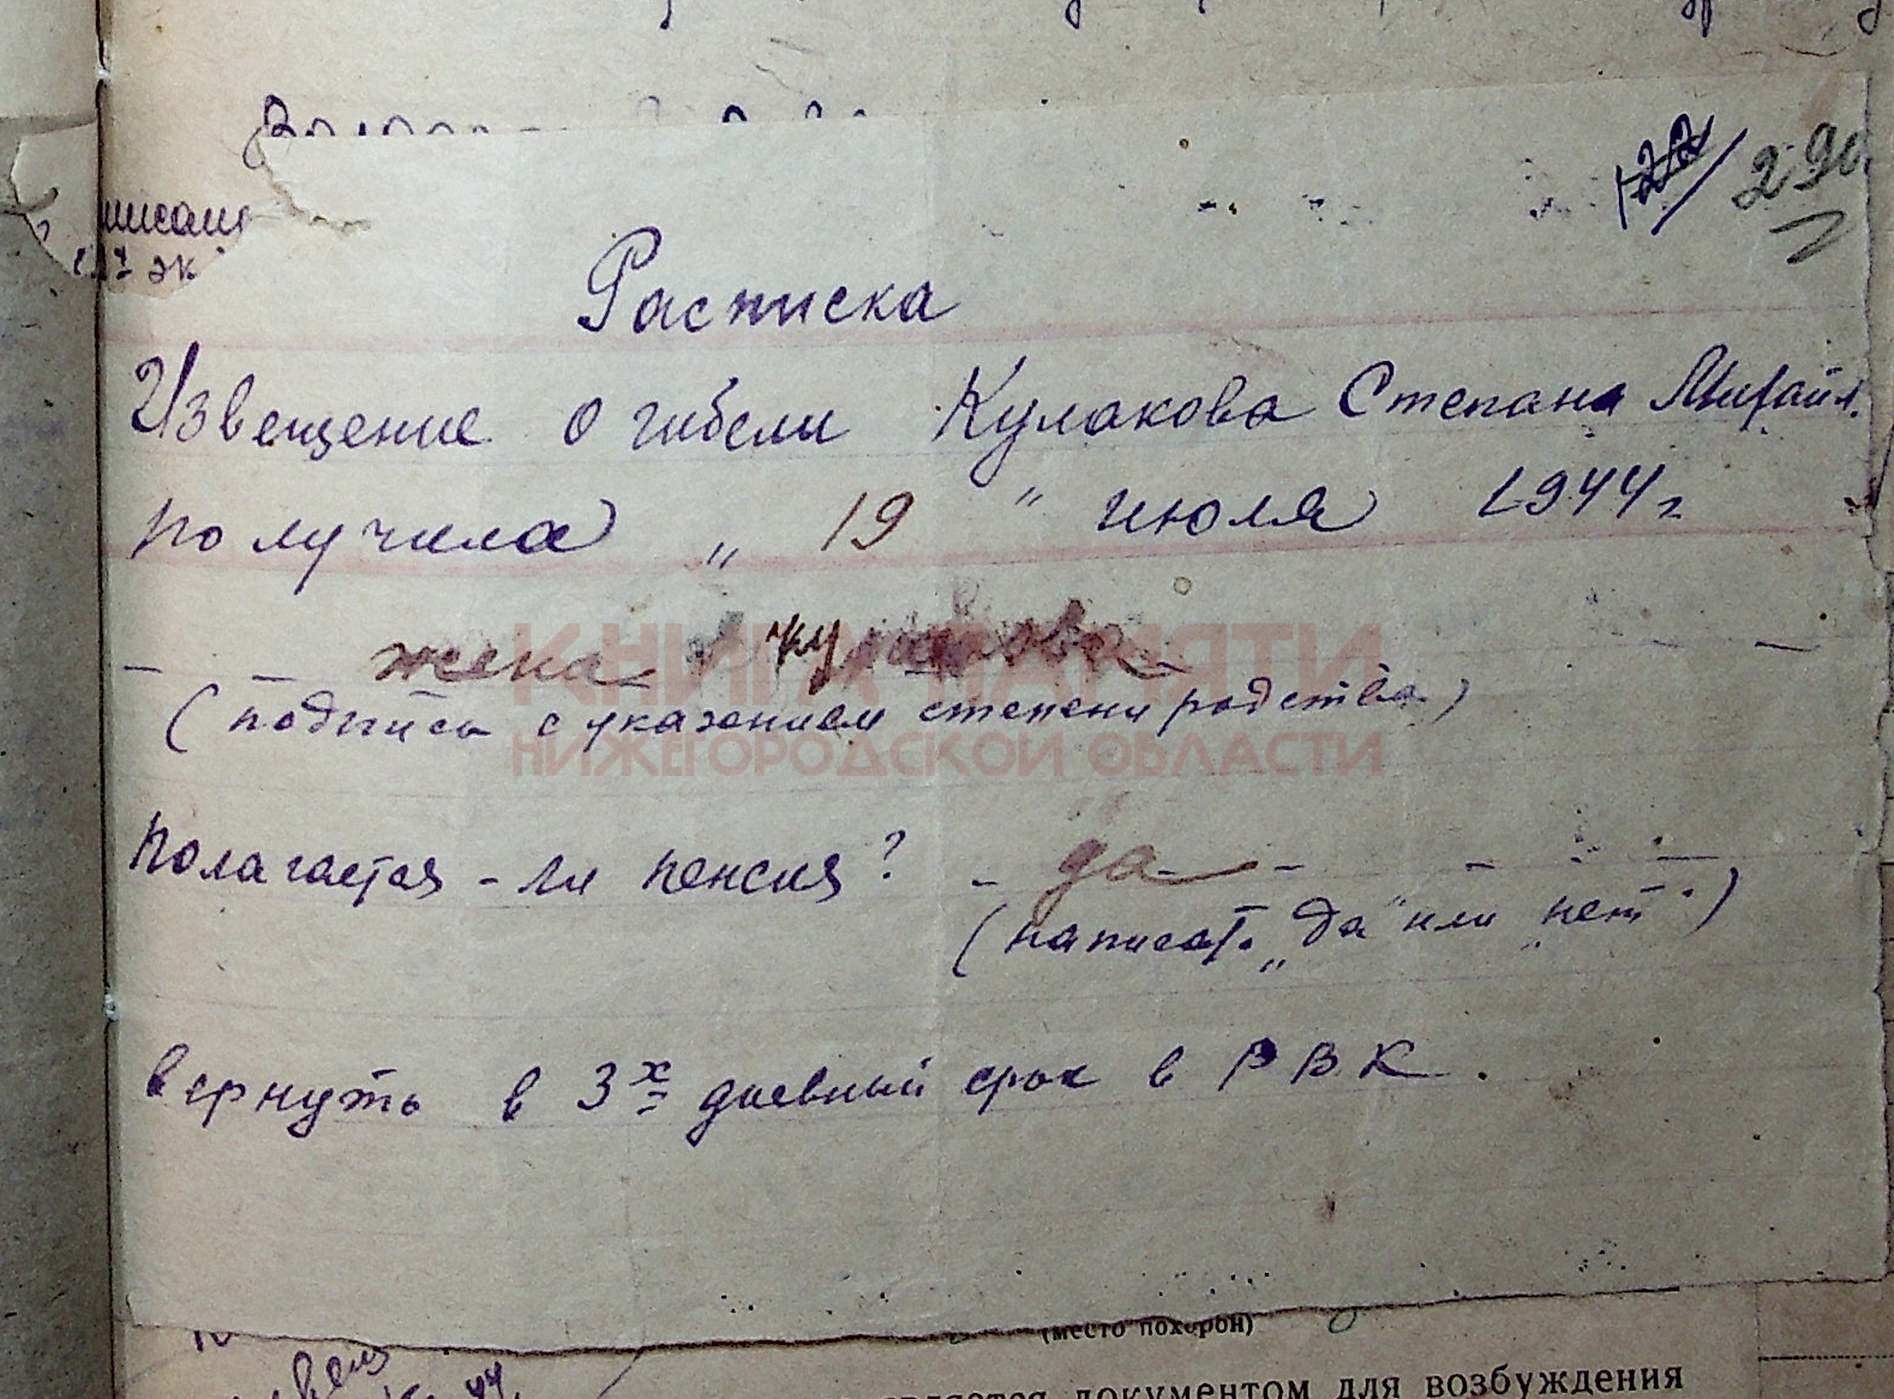 122 290
Расписка
Извещение о гибели Кулакова Степана Михайл.
получила „ 19 " июля 1944 г
жена Кулакова
КНИГА ПАМЯТИ
(подпись с указанием степени родства)
НИЖЕГОРОДСКОЙ ОБЛАСТИ
Полагается - ли пенсия? да
(написат. „да" или „нет".)
вернуть в 3х дневный срок в РВК.
(место похорон)
документом для возбуждения